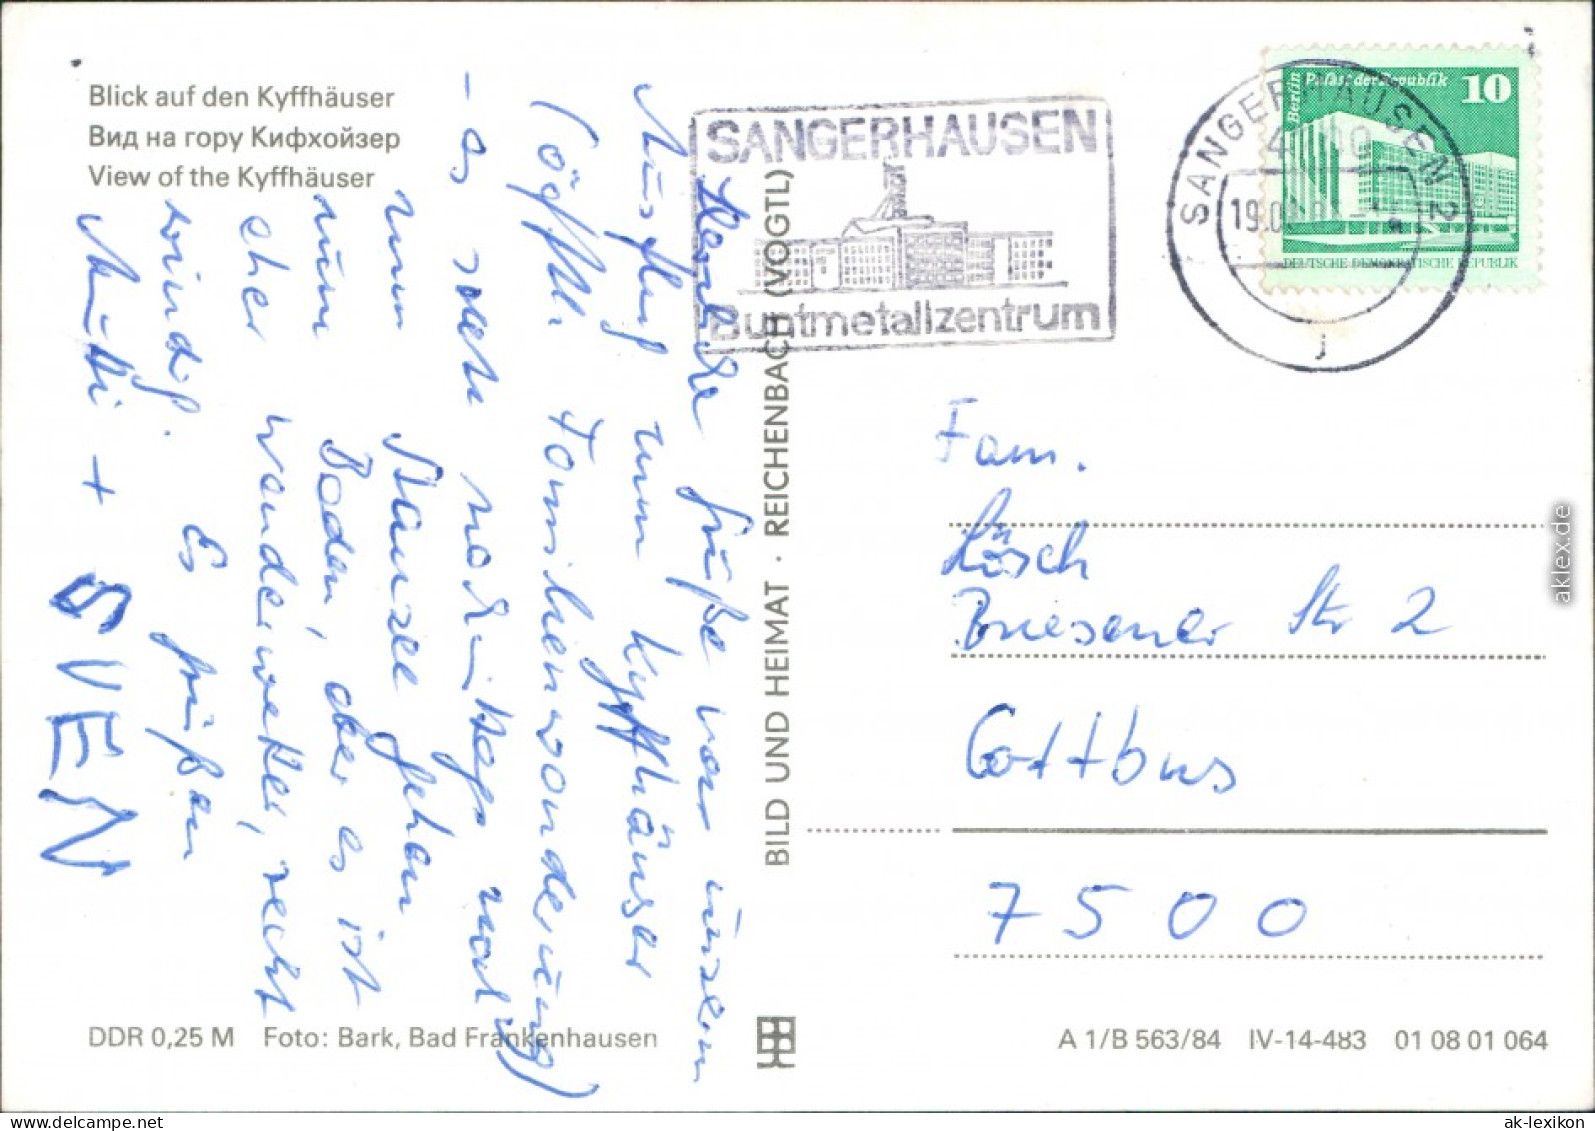 Blick auf den Kyffhäuser
Вид на гору Кифхойзер
View of the Kyffhäuser
Herzliche Grüße von unserm
Ausflug zum Kyffhäuser
(öfftl. Familienwanderung)
- es soll nachmittags noch
zum Stausee gehen
zum Baden, aber es ist
eher Wanderwetter, recht
windig. Es grüßen
Mutti + SVEN
BILD UND HEIMAT · REICHENBACH (VOGTL)
SANGERHAUSEN
Buntmetallzentrum
SANGERHAUSEN 2
4700
19.0
j
Berlin Palast der Republik 10
DEUTSCHE DEMOKRATISCHE REPUBLIK
Fam.
Lösch
Briesener Str 2
Cottbus
7500
DDR 0,25 M Foto: Bark, Bad Frankenhausen
A 1/B 563/84 IV-14-483 01 08 01 064
aklex.de
ak-lexikon